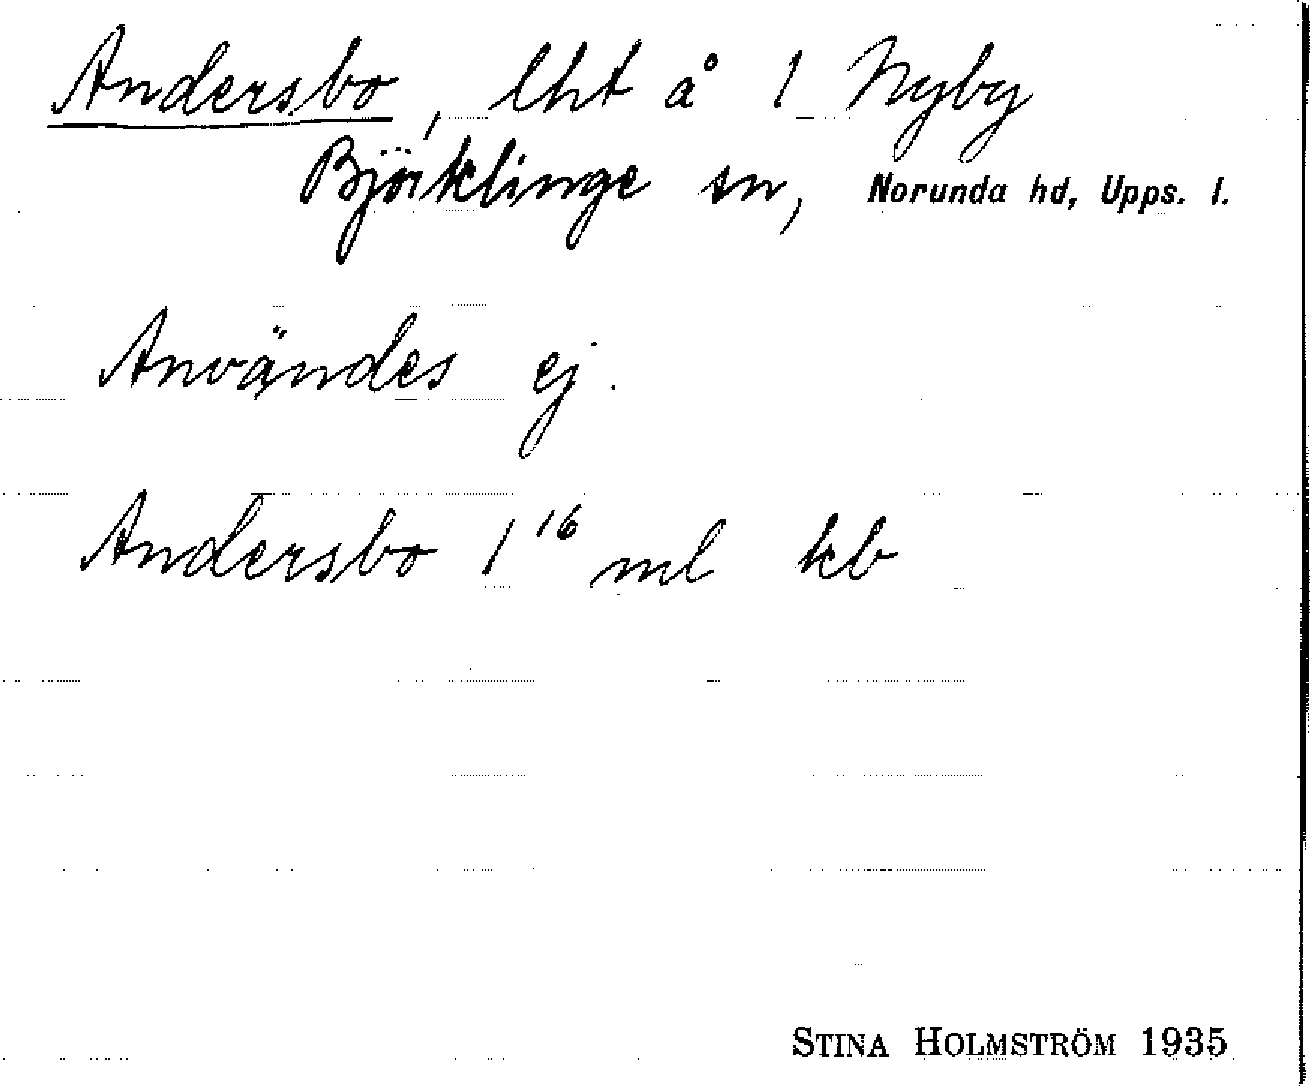 Andersbo, lht å 1 Nyby
Björklinge sn, Norunda hd, Upps. l.
Användes ej.
Andersbo 1¹⁶ ml kb
STINA HOLMSTRÖM 1935